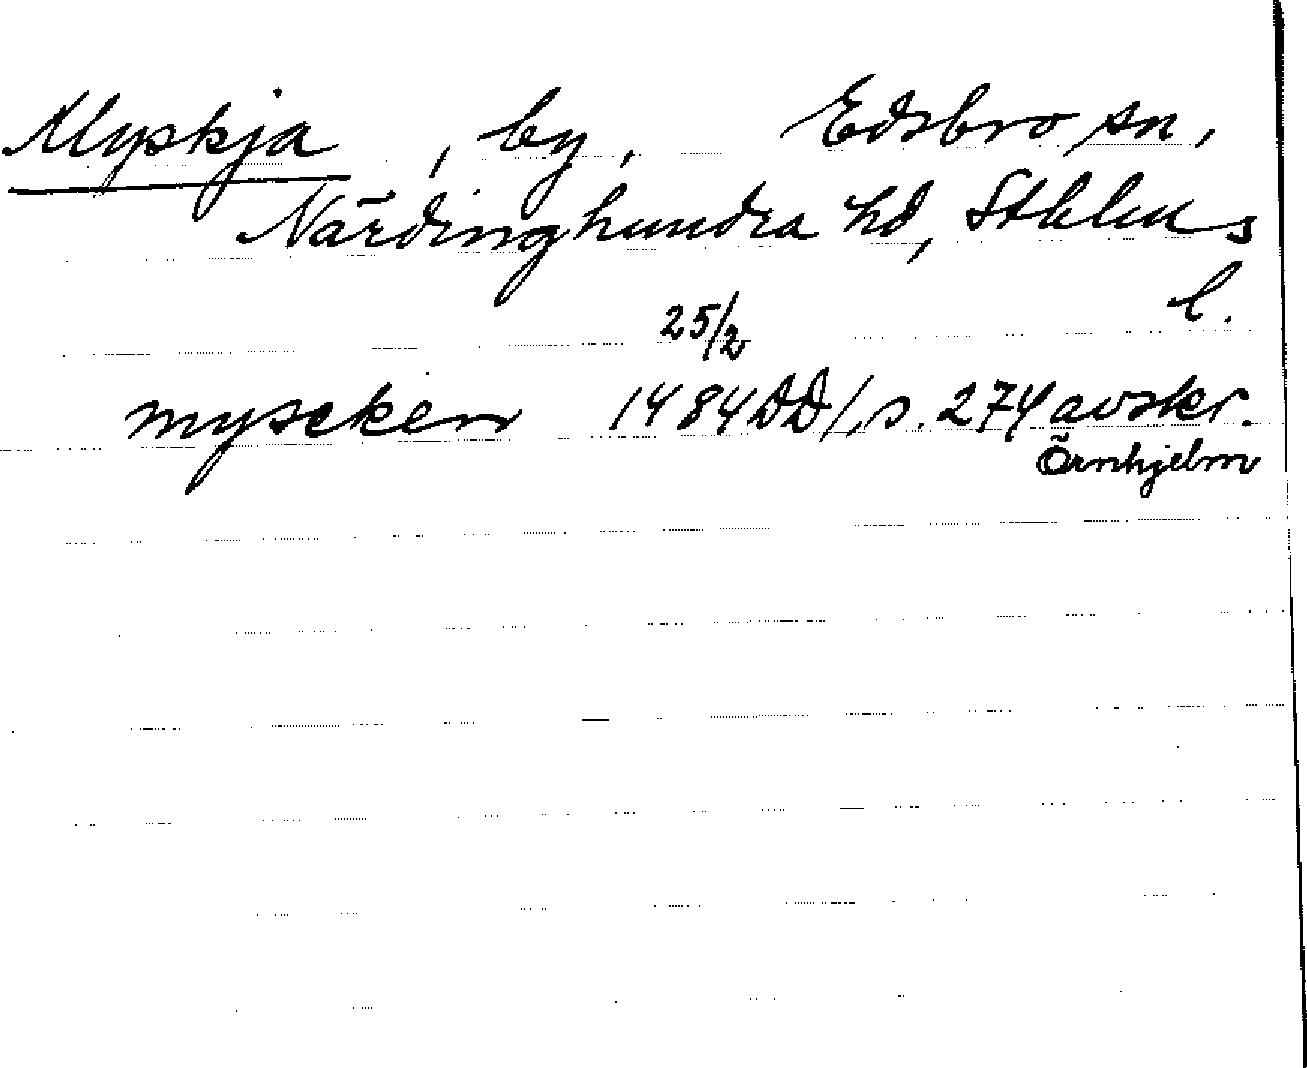 Myskja, by, Edsbro sn,
Närdinghundra hd, Sthlms
l.
25/2
myscken 1484 DD/, s. 274 avskr.
Örnhjelm